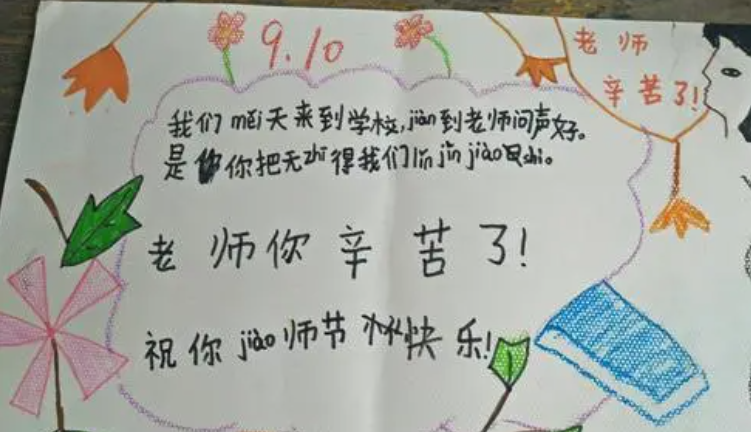 9.10
老师
辛苦了!
我们měi天来到学校,jiàn到老师问声好。
是你把无zhī得我们lǐn jìn jiào shì。
老师你辛苦了!
祝你jiào师节快乐!